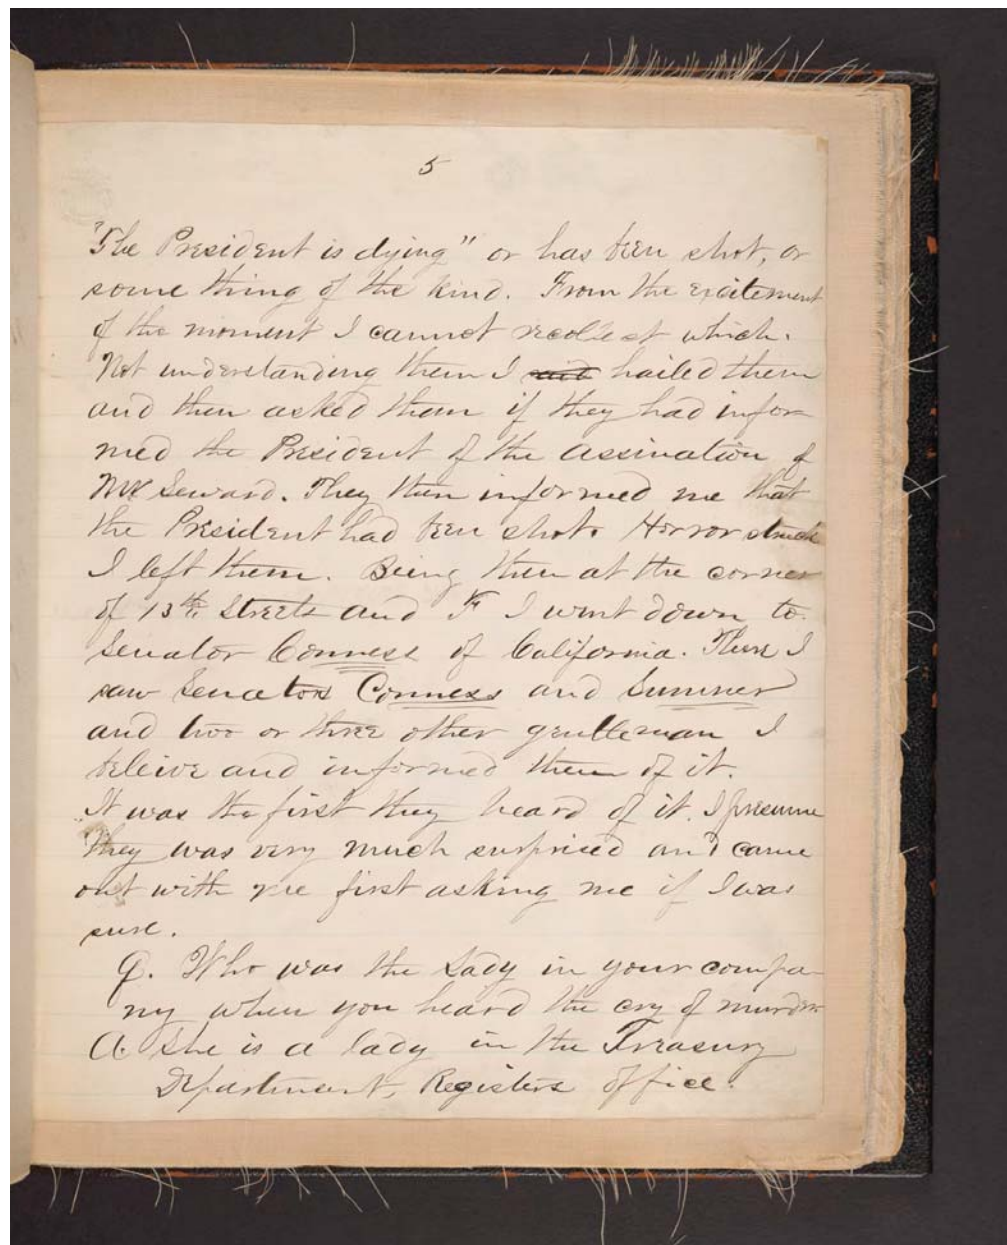 5
"The President is dying" or has been shot, or
some thing of the kind. From the excitement
of the moment I cannot recollect which.
Not understanding them I hailed them
and then asked them if they had infor-
med the President of the assination of
Mr Seward. They then informed me that
the President had been shot. Horror struck
I left them. Being then at the corner
of 13th Streets and F I went down to
Senator Conness of California. There I
saw Senators Conness and Sumner
and two or three other gentleman I
beleive and informed them of it.
It was the first they heard of it. I presume
They was very much surprised and came
out with me first asking me if I was
sure.
Q. Who was the Lady in your compa-
ny when you heard the cry of murder
A. She is a lady in the Treasury
Department, Registers office.